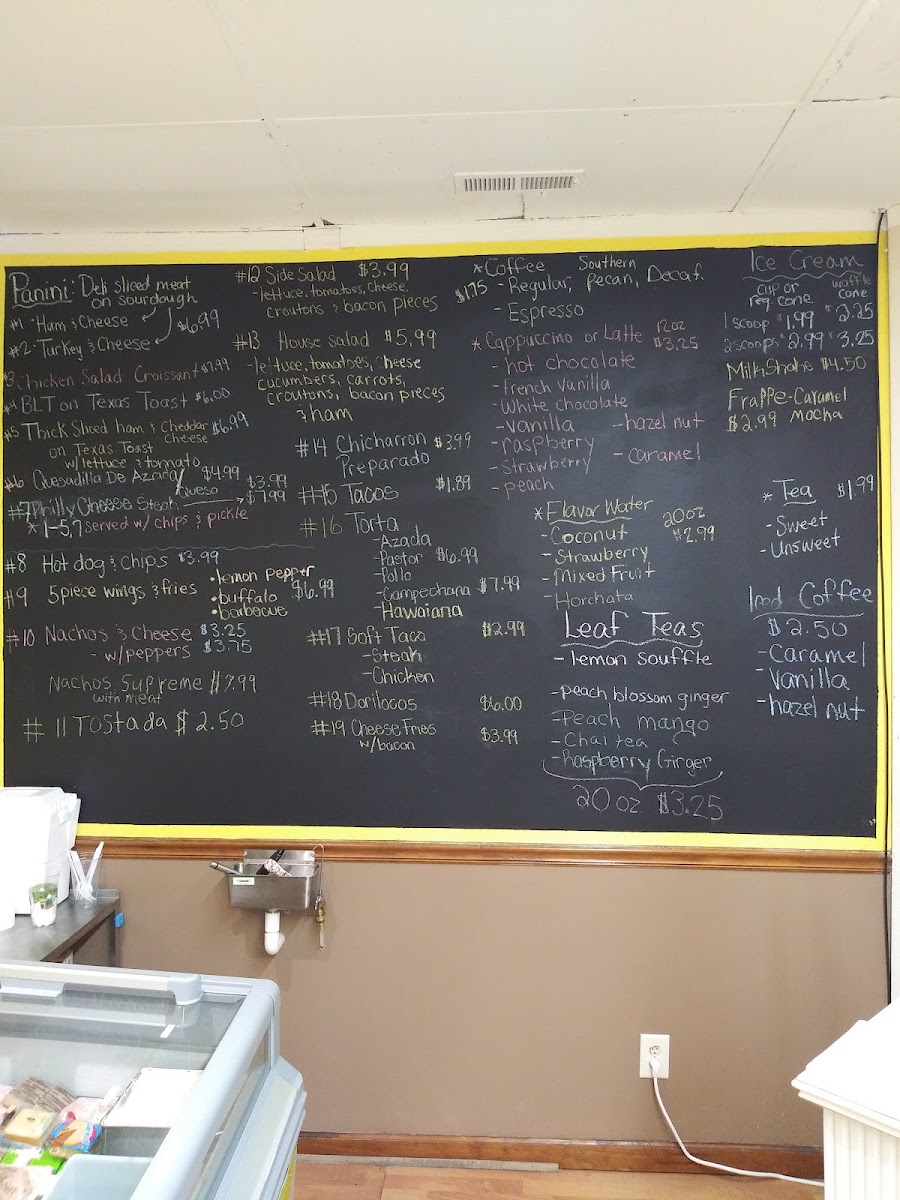 Panini: Deli sliced meat
on sourdough
#1 Ham & Cheese
$6.99
#2 Turkey & Cheese
#3 Chicken Salad Croissant $7.99
#4 BLT on Texas Toast $6.00
#5 Thick Sliced ham & Cheddar Cheese $6.99
on Texas Toast
w/ lettuce & tomato
#6 Quesadilla De Azada/ $4.99
Queso $3.99
#7 Philly Cheese Steak $7.99
* 1-5,7 served w/ chips & pickle
#8 Hot dog & Chips $3.99
#9 5 piece wings & fries
• lemon pepper
• buffalo $6.99
• barbecue
#10 Nachos & Cheese $3.25
- w/peppers $3.75
Nachos Supreme $7.99
with meat
#11 Tostada $2.50
#12 Side Salad $3.99
- lettuce, tomatoes, cheese,
croutons & bacon pieces
#13 House salad $5.99
- lettuce, tomatoes, cheese
cucumbers, carrots,
croutons, bacon pieces
& ham
#14 Chicharron $3.99
Preparado
#15 Tacos $1.89
#16 Torta
- Azada
- Pastor $6.99
- Pollo
- Campechana $7.99
- Hawaiana
#17 Soft Taco $2.99
- Steak
- Chicken
#18 Dorilocos $6.00
#19 Cheese Fries $3.99
w/bacon
* Coffee Southern
$1.75 - Regular, Pecan, Decaf.
- Espresso
* Cappuccino or Latte 12oz $3.25
- hot chocolate
- french vanilla
- White chocolate
- vanilla - hazel nut
- raspberry
- strawberry - caramel
- peach
* Flavor Water 20oz
- Coconut $2.99
- Strawberry
- Mixed Fruit
- Horchata
Leaf Teas
- lemon souffle
- peach blossom ginger
- Peach mango
- Chai tea
- Raspberry Ginger
20 oz $3.25
Ice Cream
cup or reg. cone waffle cone
1 scoop $1.99 $2.25
2 scoops $2.99 $3.25
MilkShake $4.50
Frappe - Caramel
$2.99 Mocha
* Tea $1.99
- Sweet
- Unsweet
Iced Coffee
$2.50
- Caramel
- Vanilla
- hazel nut